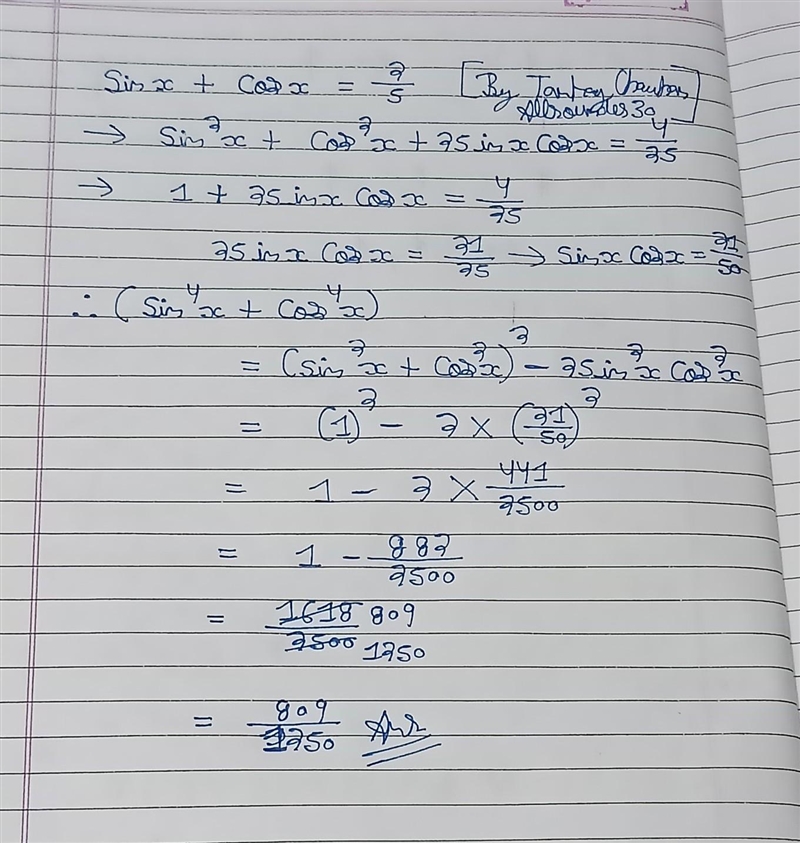 Sin x + Cos x = 2/5 [By
→ Sin²x + Cos²x + 2Sin x Cos x = 4/25
→ 1 + 2Sin x Cos x = 4/25
2Sin x Cos x = 21/25 → Sin x Cos x = 21/50
∴ (Sin⁴x + Cos⁴x)
= (Sin²x + Cos²x)² – 2Sin²x Cos²x
= (1)² – 2 × (21/50)²
= 1 – 2 × 441/2500
= 1 – 882/2500
= 1618/2500 809/1250
= 809/1250 Ans